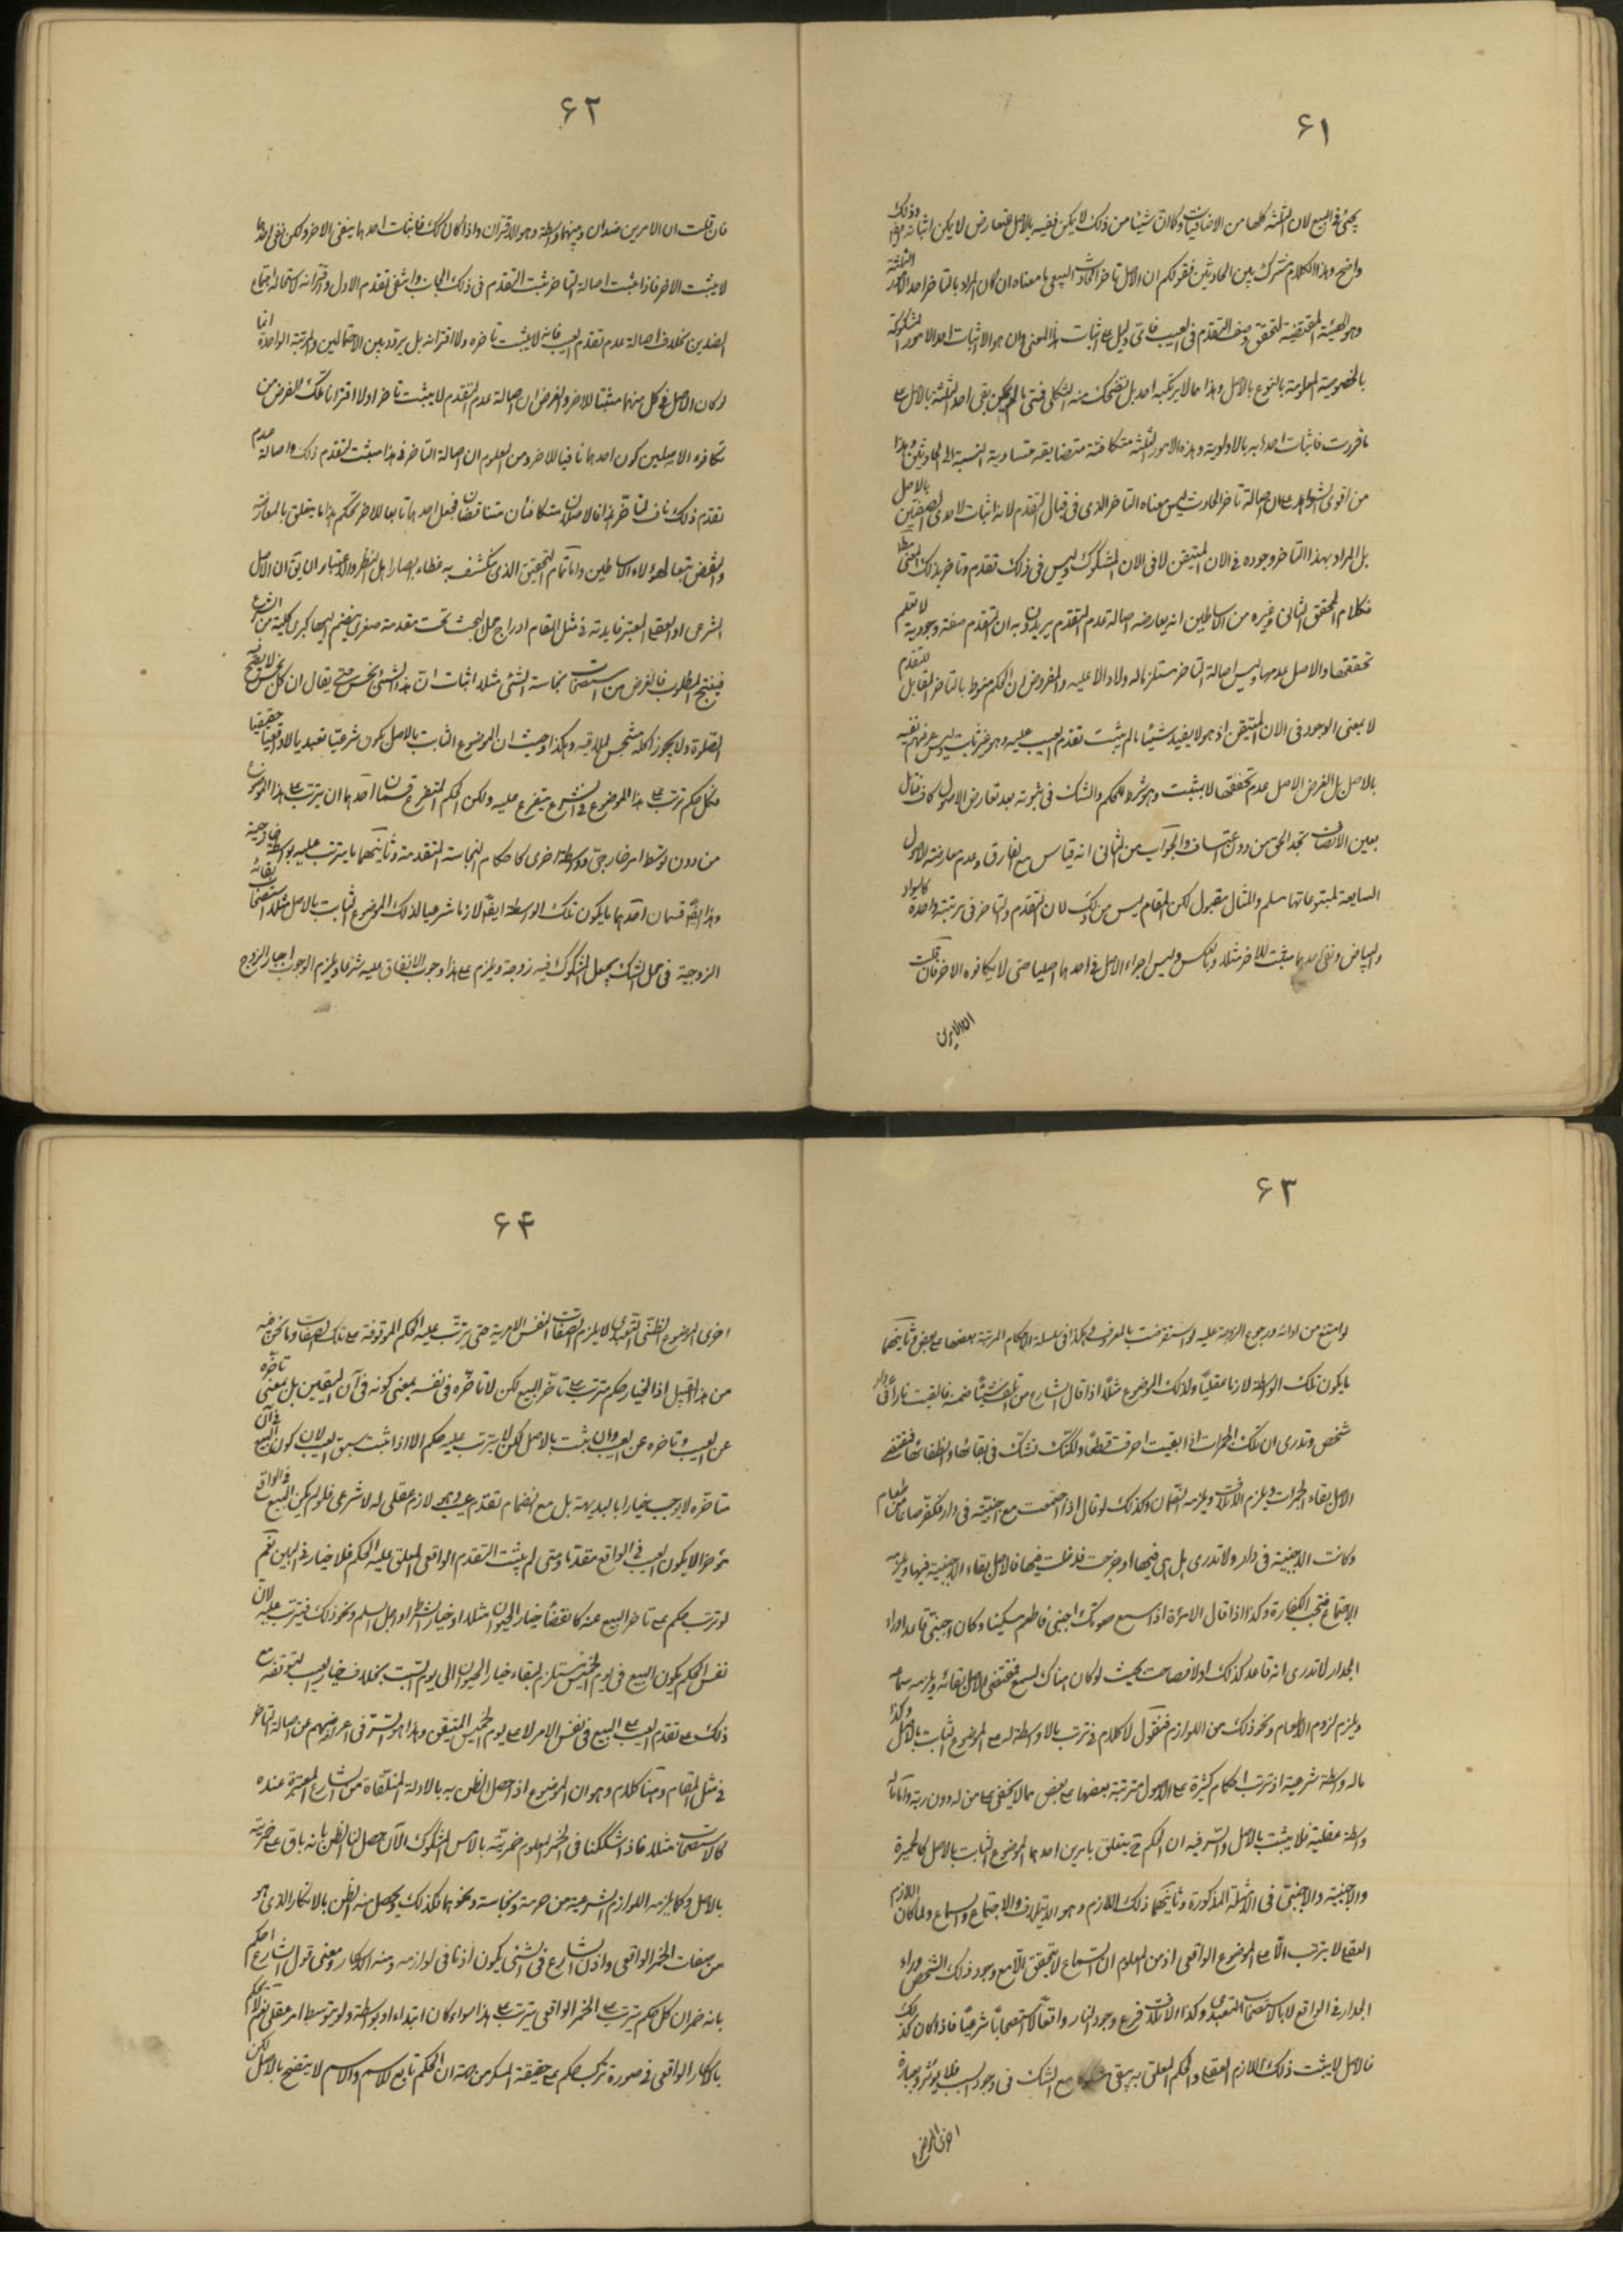 ۶۱
يجئ في البيع لان الثلثة كلها من الاضافيات وكما ان شيئا من ذلك لا يمكن نفيه بالاصل للتعارض لا يمكن اثباته وذلك
واضح وهذا الكلام مشترك بين الحادثين فقولكم ان الاصل تاخر الحادث البيع ما معناه ان كان المراد بالتاخر احد الامور الثلثة
وهو الهيئة المقتضية لتحقق وصف التقدم في العيب فاي دليل على اثبات هذا المعنى وان هو الا اثبات احد الامور المشكوكة
بالخصوصية المعلومة بالنوع بالاصل وهذا مما لا يرتكبه احد بل تضحك منه الثكلى فمتى لم يمكن نفي احد الثلثة بالاصل
ما قررت فاثبات احدها به بالاولوية وهذه الامور الثلثة متكافئة متضايفة متساوية النسبة الى الحادثين وهذا
من اقوى الشواهد على ان اصالة تاخر الحادث ليس معناه التاخر الذي في قبال التقدم لانه اثبات لاحدى الصفتين بالاصل
بل المراد بهذا التاخر وجوده في الان المتيقن لا في الان المشكوك وليس في ذلك تقدم وتاخر بذلك المعنى
فكلام المحقق الثاني وغيره من الاساطين انه يعارضه اصالة عدم التقدم يريدون به ان التقدم صفة وجودية لا تعلم
تحققها والاصل عدمها وليس اصالة التاخر مستلزما له ولا دالا عليه والمفروض ان الحكم منوط بالتاخر المقابل للتقدم
لا بمعنى الوجود في الان المتيقن اذ هو لا يفيد شيئا ما لم يثبت تقدم العيب عليه وهو غير ثابت
بالاصل بل الغرض الاصل عدم تحققها لا يثبت وهو شرط للحكم والشك في ثبوته بعد تعارض الاصول كاف فتامل
بعين الانصاف تجد الحق من دون اعتساف والجواب عن الثاني انه قياس مع الفارق وعدم معارضة الاصول
السابعة لمتبوعاتها مسلم والمثال مقبول لكن المقام ليس من ذلك لان التقدم والتاخر في مرتبة واحدة كالسواد
والبياض ونفي احدهما مثبت للاخر مثلا وبالعكس وليس اجراء الاصل في احدهما اصليا حتى لا يكافوه الاخر فان قلت
ان الامرين
۶۲
فان قلت ان الامرين ضدان وبينهما واسطة وهو الاقتران واذا كان كك فاثبات احدهما ينفي الاخر ولكن نفي احدهما
لا يثبت الاخر فاذا ثبت اصالة التاخر ثبت التقدم في ذلك الجانب وانتفى تقدم الاول واقترانه لاستحالة اجتماع
الضدين بخلاف اصالة عدم تقدم العيب فانه لا يثبت تاخره ولا اقترانه بل يتردد بين الاحتمالين والمرتبة الواحدة انما
لو كان الاصل في كل منهما مثبتا للاخر والغرض ان اصالة عدم التقدم لا يثبت تاخرا ولا اقترانا قلت الغرض من
تكافوء الاصلين كون احدهما نافيا للاخر ومن المعلوم ان اصالة التاخر في هذا مثبت لتقدم ذلك واصالة عدم
تقدم ذلك ناف لتاخر هذا فالاصلان متكافئان متناقضان فجعل احدهما تابعا للاخر تحكم هذا ما يتعلق بالمعارضة
والنقض تبعا لهؤلاء الاساطين واما تمام التحقيق الذي ينكشف به غطاء ابصار اهل النظر والاعتبار ان يق ان الاصل
الشرعي او العقلي المعتبر فايدته في مثل المقام ادراج محل البحث تحت مقدمة صغرى ينضم اليها كبرى كلية من الشرع
فينتج المطلوب فالغرض من استصحاب نجاسة الشئ مثلا اثبات ان هذا الشئ نجس حتى يقال ان كل نجس لا يصح به
الصلوة ولا يجوز اكله منجس لملاقيه وهكذا وحيث ان الموضوع الثابت بالاصل يكون شرعيا تعبديا لا واقعيا حقيقيا
فكل حكم ترتب على هذا الموضوع في الشرع يتفرع عليه ولكن الحكم المتفرع قسمان احدهما ان يترتب على هذا الموضوع
من دون توسط امر خارجي وواسطة اخرى كاحكام النجاسة المتقدمة وثانيهما ما يترتب عليه بواسطة خارجية
وهذا ايضا قسمان احدهما ما يكون تلك الواسطة ايضا لازما شرعيا لذلك الموضوع الثابت بالاصل مثلا استصحاب بقاء
الزوجية في محل الشك يجعل المشكوك فيه زوجة ويلزم على هذا وجوب الانفاق عليه شرعا ويلزم الوجوب اجبار الزوج
۶۳
لو امتنع من ادائه ورجوع الزوجة عليه لو استقرضت بالمعروف وهكذا في سلسلة الاحكام المرتبة بعضها على بعض وثانيهما
ما يكون تلك الواسطة لازما عقليا لذلك الموضوع مثلا اذا قال الشارع من اتلف شيئا ضمنه فالقيت نارا في دار
شخص وتدرى ان تلك الجمرات اذا بقيت احرقت قطعا ولكنك تشك في بقائها وانطفائها فمقتضى
الاصل بقاء الجمرات ويلزم الاتلاف ويلزمه الضمان وكذلك لو قال اذا اجتمعت مع اجنبية في دار فكفر صاعا من طعام
وكانت الاجنبية في دار ولا تدرى هل هي فيها او خرجت فدخلت فيها فالاصل بقاء الاجنبية فيها ويلزمه
الاجتماع فتجب الكفارة وكذا اذا قال الامرئة اذا سمع صوتك اجنبي فاطعم مسكينا وكان اجنبي قاعدا وراء
الجدار لا تدرى انه قاعد كذلك اولا فصاحت بحيث لو كان هناك لسمع فمقتضى الاصل بقائه ويلزمه سماعه
ويلزم لزوم الاطعام ونحو ذلك من اللوازم فنقول لا كلام في ترتب ما لا واسطة له على الموضوع الثابت بالاصل وكذا
ما له واسطة شرعية اذ ترتب احكام كثيرة على الاصول مترتبة بعضها على بعض مما لا يخفى على من له دون ربة واما ما له
واسطة عقلية فلا يثبت بالاصل والسر فيه ان الحكم ح يتعلق بامرين احدهما الموضوع الثابت بالاصل كالجمرة
والاجنبية والاجنبي في الامثلة المذكورة وثانيهما ذلك اللازم وهو الاتلاف والاجتماع والسماع ولما كان اللازم
العقلي لا يترتب الا على الموضوع الواقعي اذ من المعلوم ان السماع لا يتحقق الا مع وجود ذلك الشخص وراء
الجدار في الواقع لا بالاستصحاب التعبدي وكذا الاتلاف فرع وجود النار واقعا لا استصحابا شرعيا فاذا كان كذلك
فالاصل لا يثبت ذلك اللازم العقلي والحكم المعلق به يبقى مع الشك في وجود السبب فلا يؤثر وبعبارة
اخرى الموضوع
۶۴
اخرى الموضوع الظني التعبدي لا يلزم الصفات النفس الامرية حتى يترتب عليه الحكم الموقوفة على تلك الصفات وما نحن فيه
من هذا القبيل اذ الخيار حكم مترتب على تاخر البيع لكن لا تاخره في نفسه بمعنى كونه في آن اليقين بل بمعنى تاخره
عن العيب وتاخره عن العيب وان ثبت بالاصل لكن لا يترتب عليه حكم الا اذا ثبت سبق العيب لان كون البيع في آن
متاخره لا يوجب خيارا بالبديهة بل مع انضمام تقدم عيب وهو لازم عقلي له لا شرعي فلو لم يكن المبيع في الواقع
مؤخرا لا يكون العيب في الواقع مقدما ومتى لم يثبت التقدم الواقعي المعلق عليه الحكم فلا خيار في البين نعم
لو ترتب حكم على تاخر البيع عنه كانقضاء خيار الحيوان مثلا او خيار الشرط او اجل السلم ونحو ذلك فيترتب عليه لان
نفس الحكم بكون البيع في يوم الخميس مستلزم لبقاء خيار الحيوان الى يوم السبت بخلاف خيار العيب لتوقفه مع
ذلك على تقدم العيب على البيع في نفس الامر لا على يوم الخميس المتيقن وهذا هو السر في اعراضهم عن اصالة التاخر
في مثل المقام وهنا كلام وهو ان الموضوع اذا حصل الظن به بالادلة المتلقاة من الشارع المعتبرة عنده
كالاستصحاب مثلا فاذا شككنا في الخمر المعلوم خمريته بالامس المشكوك الآن حصل لنا الظن بانه باق على خمريته
بالاصل وكما يلزمه اللوازم الشرعية من حرمة ونجاسة ونحوهما فكذلك يحصل منه الظن بالاسكار الذي هو
من صفات الخمر الواقعي واذن الشارع في الشئ يكون اذنا في لوازمه ومنه الاسكار ومعنى قول الشارع احكم
بانه خمر ان كل حكم يترتب على الخمر الواقعي يترتب على هذا سواء كان ابتداء او بواسطة ولو بتوسط امر عقلي نعم لا يحكم
بالاسكار الواقعي في صورة ترتب حكم على حقيقة المسكر من جهة ان الحكم تابع للاسم والاسم لا يتضح بالاصل لكن